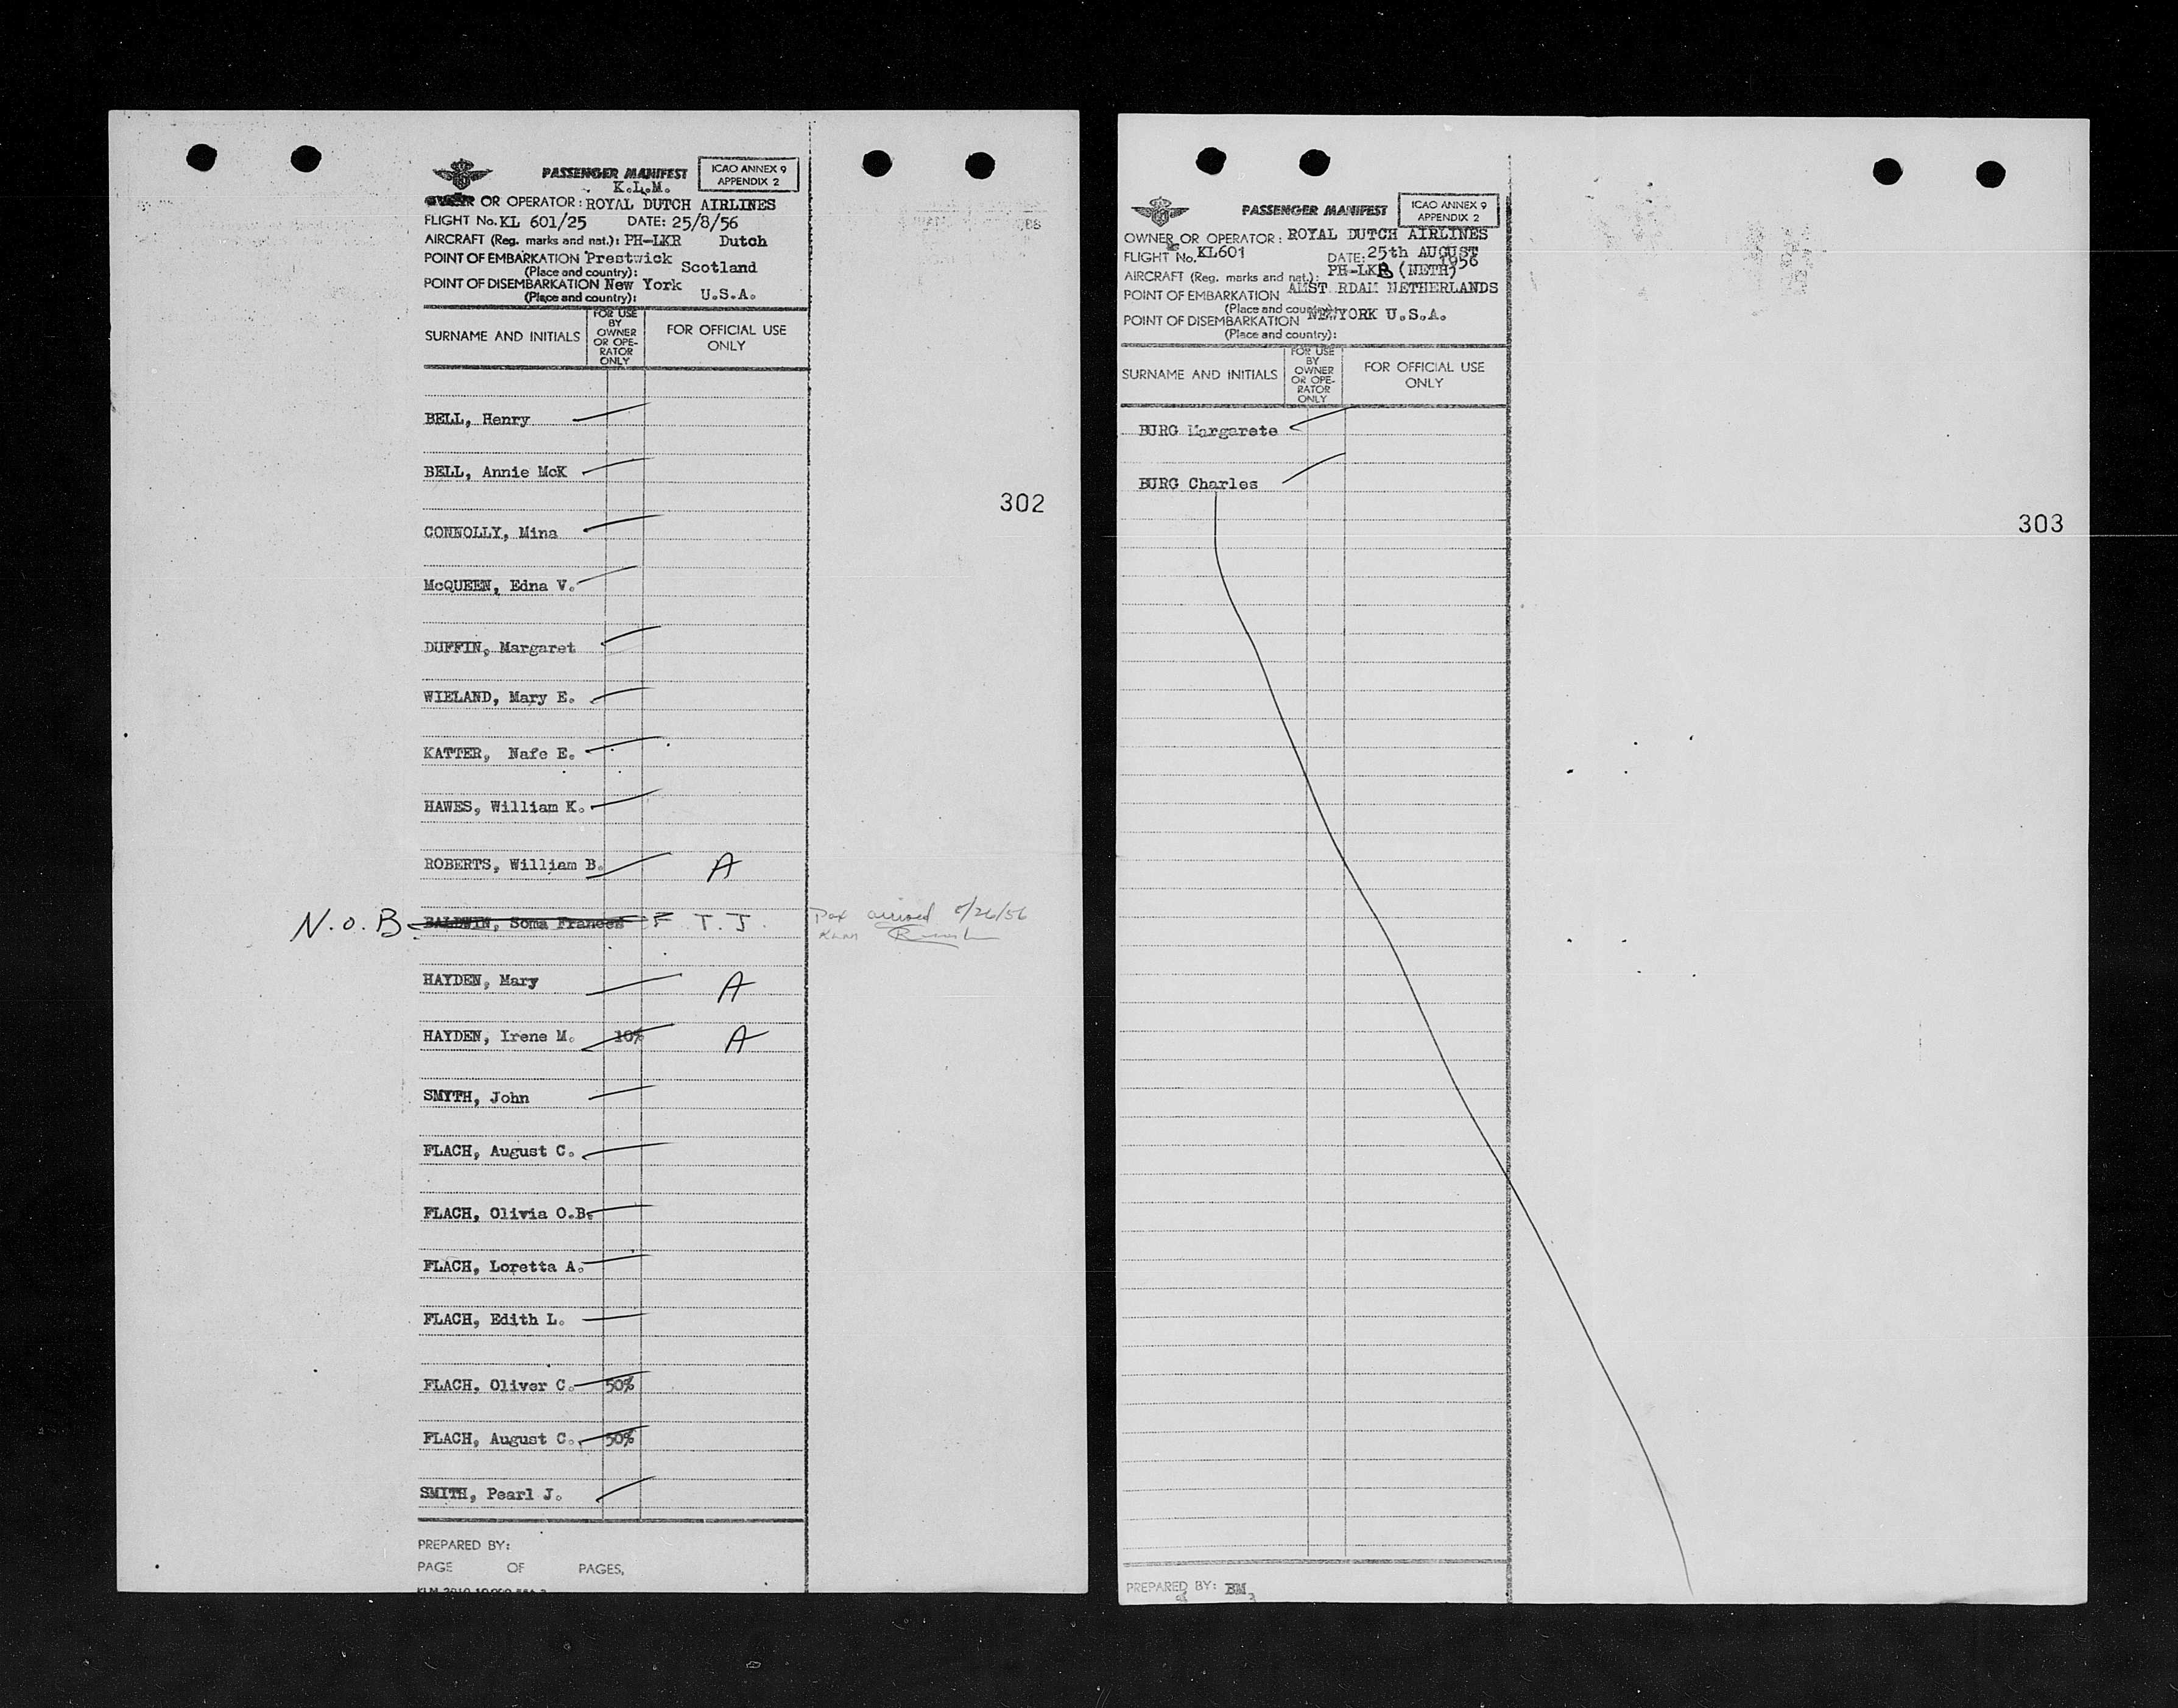 PASSENGER MANIFEST
ICAO ANNEX 9
APPENDIX 2
K.L.M.
OR OPERATOR: ROYAL DUTCH AIRLINES
FLIGHT No. KL 601/25 DATE: 25/8/56
AIRCRAFT (Reg. marks and nat.): PH-LKR Dutch
POINT OF EMBARKATION Prestwick Scotland
(Place and country):
POINT OF DISEMBARKATION New York U.S.A.
(Place and country):
SURNAME AND INITIALS
FOR USE
BY
OWNER
OR OPE-
RATOR
ONLY
FOR OFFICIAL USE
ONLY
BELL, Henry
BELL, Annie McK
302
CONNOLLY, Mina
McQUEEN, Edna V.
DUFFIN, Margaret
WIELAND, Mary E.
KATTER, Nafe E.
HAWES, William K.
ROBERTS, William B. A
N.O.B BALDWIN, Soma Frances F T.J. Pax arrived 8/26/56
HAYDEN, Mary A
HAYDEN, Irene M. 10% A
SMYTH, John
FLACH, August C.
FLACH, Olivia O.B.
FLACH, Loretta A.
FLACH, Edith L.
FLACH, Oliver C. 50%
FLACH, August C. 50%
SMITH, Pearl J.
PREPARED BY:
PAGE OF PAGES,
PASSENGER MANIFEST
ICAO ANNEX 9
APPENDIX 2
OWNER OR OPERATOR: ROYAL DUTCH AIRLINES
FLIGHT No. KL601 DATE: 25th AUGUST
1956
AIRCRAFT (Reg. marks and nat.): PH-LKR (NETH)
POINT OF EMBARKATION AMST RDAM NETHERLANDS
(Place and country):
POINT OF DISEMBARKATION NEWYORK U.S.A.
(Place and country):
SURNAME AND INITIALS
FOR USE
BY
OWNER
OR OPE-
RATOR
ONLY
FOR OFFICIAL USE
ONLY
BURG Margarete
BURG Charles
303
PREPARED BY: BM